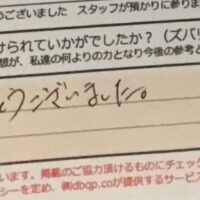 ございました スタッフが預かりに参りま
けられていかがでしたか？（ズバリ
想が、私達の何よりの力となり今後の参考と
ようございました。
います。掲載のご協力頂けるものにチェック
シーを定め、㈱dbqp.coが提供するサービス